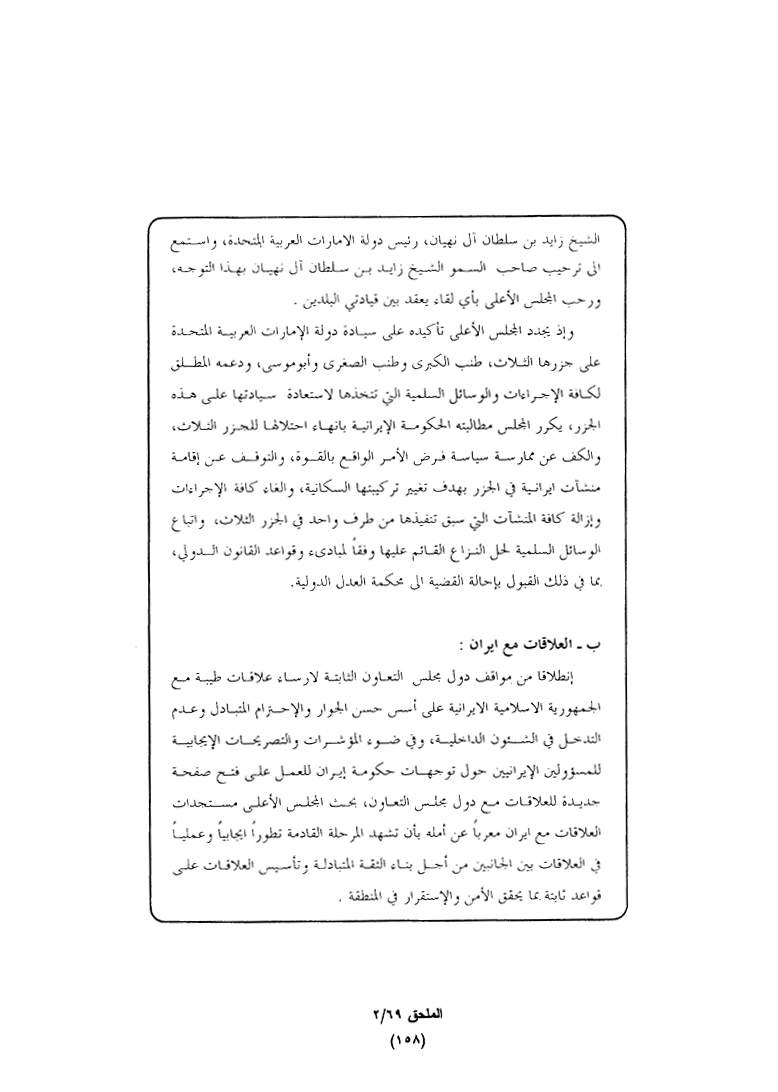 الشيخ زايد بن سلطان آل نهيان، رئيس دولة الامارات العربية المتحدة، واستمع
الى ترحيب صاحب السمو الشيخ زايد بن سلطان آل نهيان بهذا التوجه،
ورحب المجلس الأعلى بأي لقاء يعقد بين قيادتي البلدين .
وإذ يجدد المجلس الأعلى تأكيده على سيادة دولة الإمارات العربية المتحدة
على جزرها الثلاث، طنب الكبرى وطنب الصغرى وأبوموسى، ودعمه المطلق
لكافة الإجراءات والوسائل السلمية التي تتخذها لاستعادة سيادتها على هذه
الجزر، يكرر المجلس مطالبته الحكومة الإيرانية بانهاء احتلالها للجزر الثلاث،
والكف عن ممارسة سياسة فرض الأمر الواقع بالقوة، والتوقف عن إقامة
منشآت ايرانية في الجزر بهدف تغيير تركيبتها السكانية، والغاء كافة الإجراءات
وإزالة كافة المنشآت التي سبق تنفيذها من طرف واحد في الجزر الثلاث، واتباع
الوسائل السلمية لحل النزاع القائم عليها وفقاً لمبادىء وقواعد القانون الدولي،
بما في ذلك القبول بإحالة القضية الى محكمة العدل الدولية.
ب ـ العلاقات مع ايران :
إنطلاقا من مواقف دول مجلس التعاون الثابتة لارساء علاقات طيبة مع
الجمهورية الاسلامية الايرانية على أسس حسن الجوار والإحترام المتبادل وعدم
التدخل في الشئون الداخلية، وفي ضوء المؤشرات والتصريحات الإيجابية
للمسؤولين الإيرانيين حول توجهات حكومة إيران للعمل على فتح صفحة
جديدة للعلاقات مع دول مجلس التعاون، بحث المجلس الأعلى مستجدات
العلاقات مع ايران معرباً عن أمله بأن تشهد المرحلة القادمة تطوراً ايجابياً وعملياً
في العلاقات بين الجانبين من أجل بناء الثقة المتبادلة وتأسيس العلاقات على
قواعد ثابتة بما يحقق الأمن والإستقرار في المنطقة .
الملحق ٢/٦٩
(١٥٨)